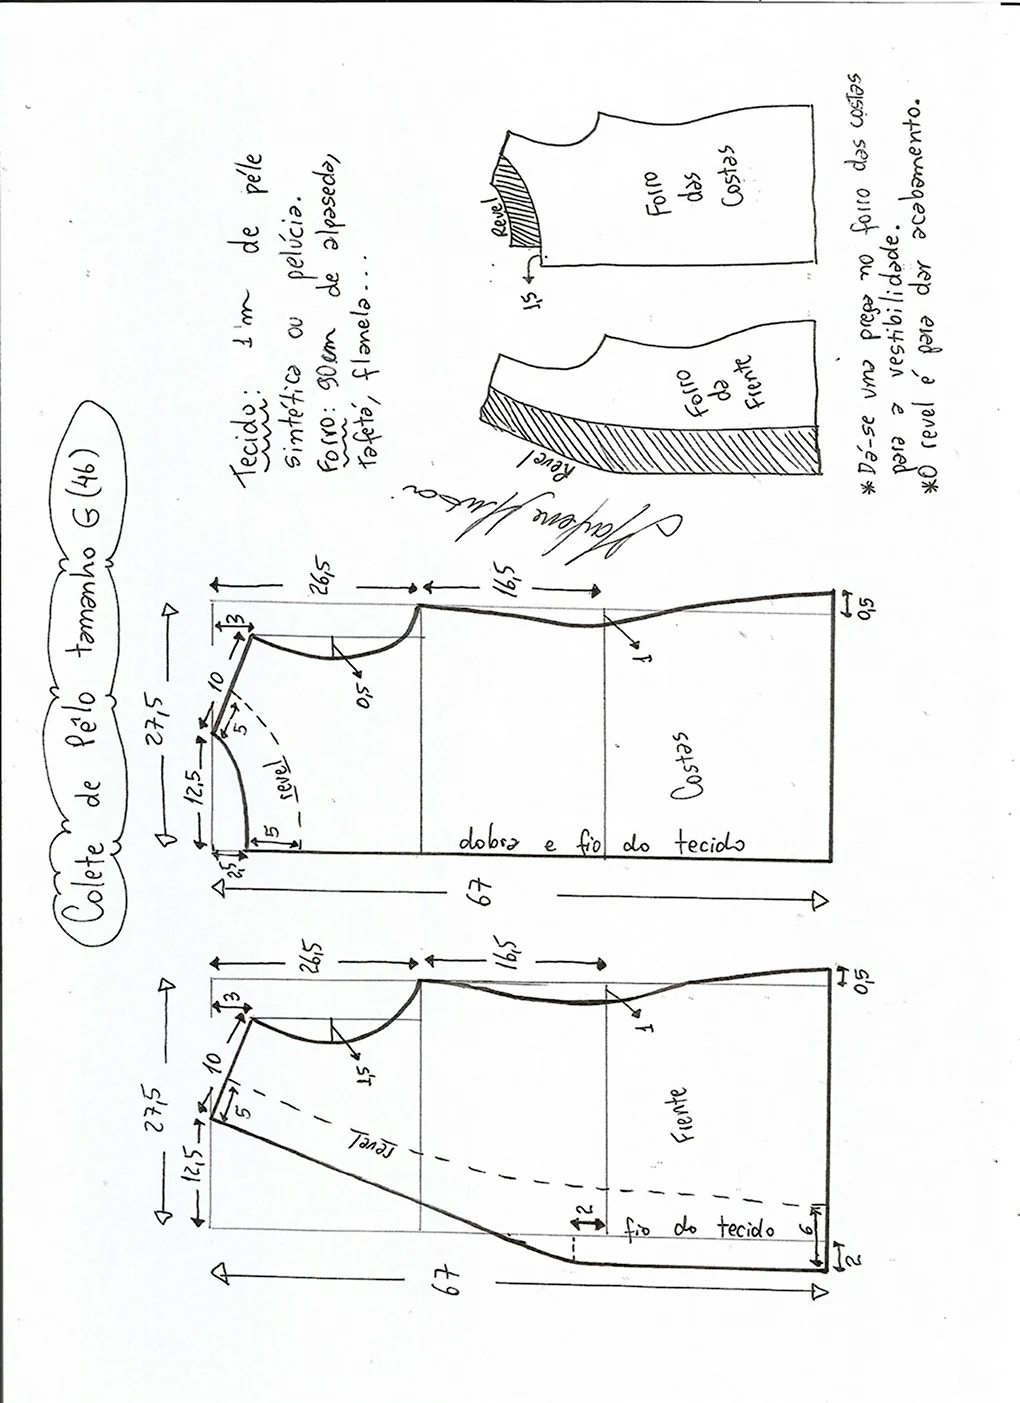 Colete de Pêlo tamanho G (46)
Tecido: 1m de péle
sintética ou pelúcia.
Forro: 90cm de alpaseda,
tafetá, flanela...
27,5
12,5
10
5
3
26,5
16,5
1,5
1
revel
Frente
2
fio do tecido
6
2
0,5
67
27,5
12,5
10
5
3
26,5
16,5
0,5
1
2,5
5
revel
Costas
dobra e fio do tecido
0,5
67
Revel
Forro
da
Frente
Revel
1,5
Forro
das
Costas
*Dá-se uma prega no forro das costas
para a vestibilidade.
*O revel é para dar acabamento.